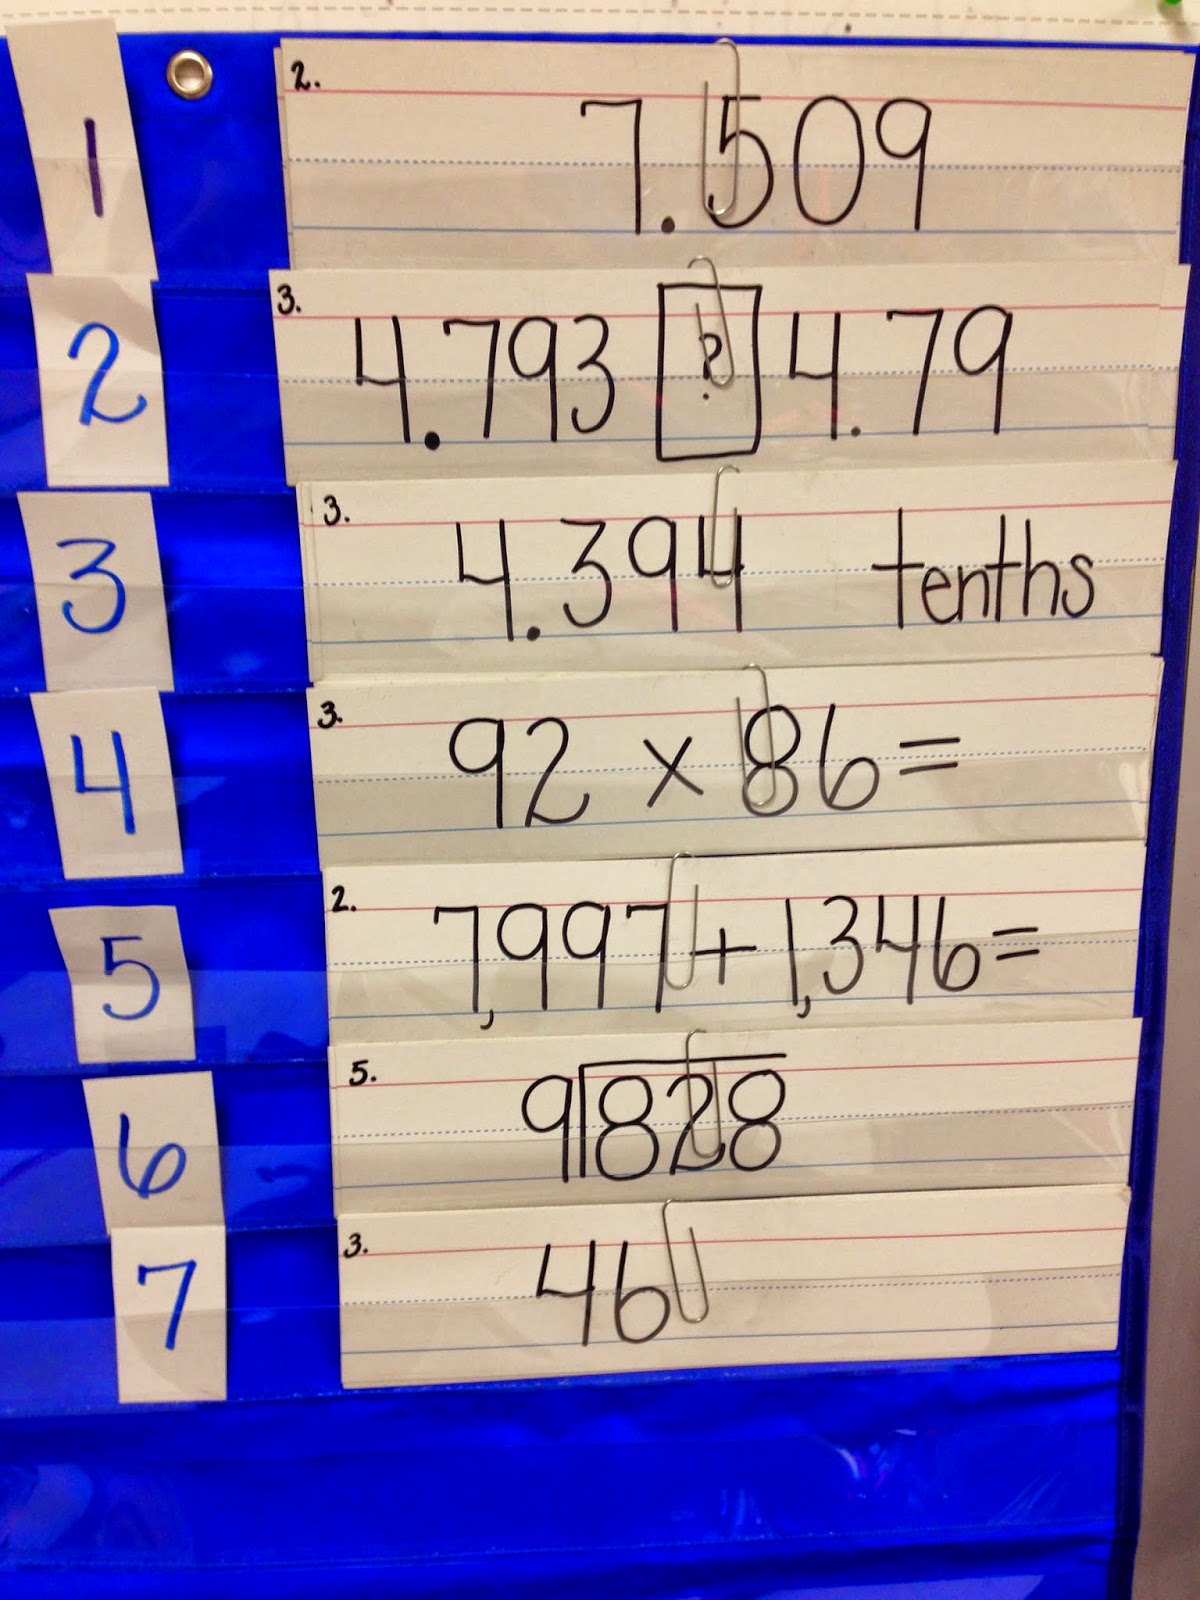 1 2. 7.509
2 3. 4.793 ? 4.79
3 3. 4.394 tenths
4 3. 92 x 86=
5 2. 7,997 + 1,346=
6 5. 9 828
7 3. 46